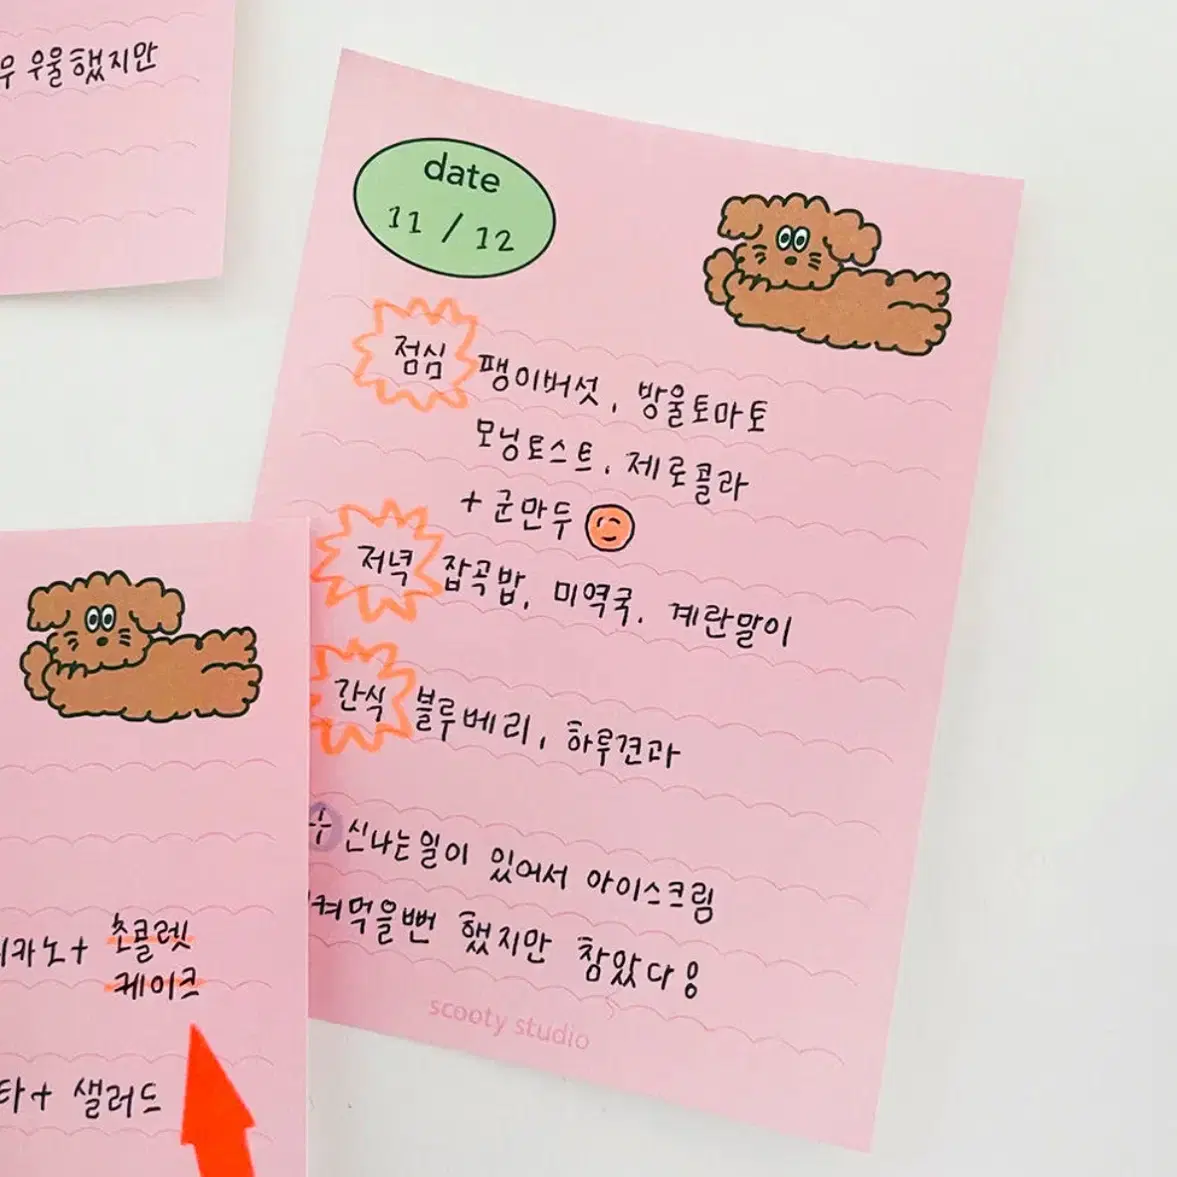 우울했지만
date
11 / 12
점심 팽이버섯, 방울토마토
모닝토스트, 제로콜라
+ 군만두
저녁 잡곡밥, 미역국, 계란말이
간식 블루베리, 하루견과
신나는일이 있어서 아이스크림
켜먹을뻔 했지만 참았다!
scooty studio
카노+ 초콜렛
케이크
타+ 샐러드